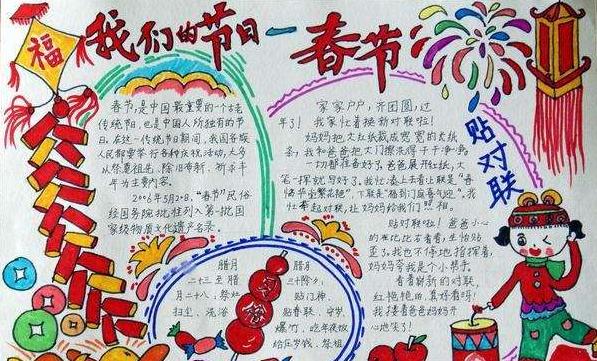 福
我们的节日—春节
春节,是中国最重要的一个古老
传统节日,也是中国人所独有的节
日。在这一传统节日期间,我国各族
人民都要举行各种庆祝活动,大多
以祭奠祖先、除旧布新、祈求丰
年为主要内容。
2006年5月 "春节"民俗
经国务院批准列入第一批国
家级物质文化遗产名录。
家家户户,齐团圆,过
年了!我家忙着换新对联啦!
妈妈把大红纸裁成宽宽的长纸
条,我和爸爸把大门擦洗得干干净净。
一切都准备好了。爸爸展开红纸,大
笔一挥就写好了。我忙凑上去看上联是"喜
下联是"福到门庭喜气迎"。我
忙 起对联,让妈妈给我们照相。
贴对联
贴对联啦!爸爸小心
的 左右看看,生怕贴
歪了。我也不停地指挥着,
妈妈夸我是个小帮手。
看着崭新的对联
红艳艳的真好看呀!
我搂着爸爸妈妈开
心地笑了!
腊月
二十三至腊
月二十八,祭灶
扫尘、洗浴
腊月
三十除夕:
贴门神、
贴春联、守岁、
爆竹、吃年夜饭
给压岁钱、祭祖